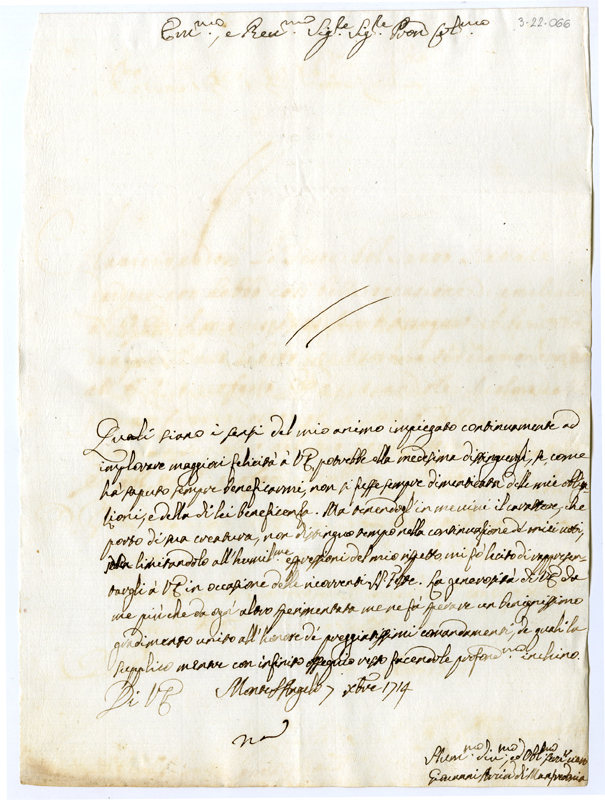 3-22-066
Em.mo, e Rev.mo Sig.re Sig.re Pron Col.mo
Quali siano i sensi del mio animo impiegato continuamente ad
implorare maggiori felicità à VE potrebbe ella medesima distinguerli, se, come
hà saputo sempre beneficarmi, non si fosse sempre dimenticata delle mie obliga-
tioni, e della di lei beneficenza. Ma tenendogl'in me vivi il carattere, che
porto di sua creatura, non distinguo tempo nella continuazione de miei voti,
limitandolo all'humil.me espressioni del mio rispetto, mi fò lecito di rappresen-
targli à VE in occasione delle ricorrenti Feste. La generosità di VE da
me più che da ogn'altro sperimentata me ne fà sperare un benignissimo
gradimento unito all'honore di preggiatissimi comandamenti, de quali la
supplico mentre con infinito ossequio resto facendole profond.mo inchino.
Di VE Monte S Angelo 7 xbre 1714
Hum.mo Div.mo ed Obl.mo
Giovanni di Manfredonia